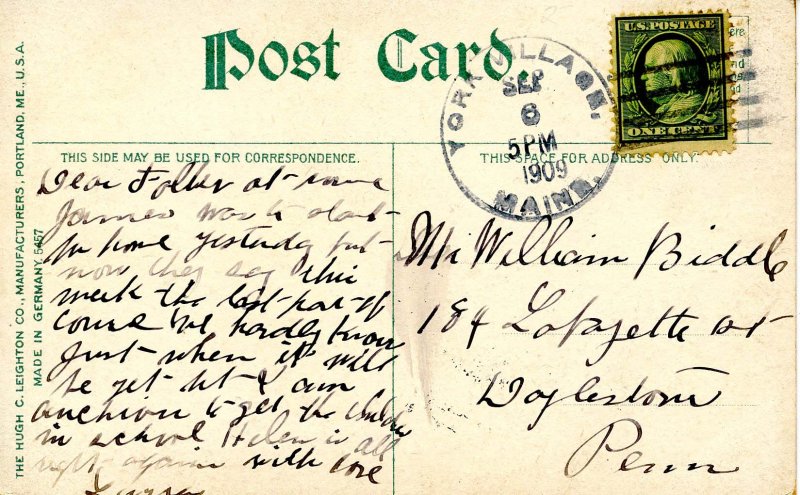 Post Card.
U.S. POSTAGE
ONE CENT
YORK VILLAGE,
SEP
6
5 PM
1909
MAINE.
THIS SIDE MAY BE USED FOR CORRESPONDENCE.
THIS SPACE FOR ADDRESS ONLY.
THE HUGH C. LEIGHTON CO., MANUFACTURERS, PORTLAND, ME., U.S.A.
MADE IN GERMANY 5467
Dear Folks at home
James was to start
for home yesterday but
now they say this
week the last part of
course we hardly know
just when it will
be yet but I am
anxious to get the children
in school Helen is all
right again with love
Mr William Biddle
184 Lafayette St
Doylestown
Penn